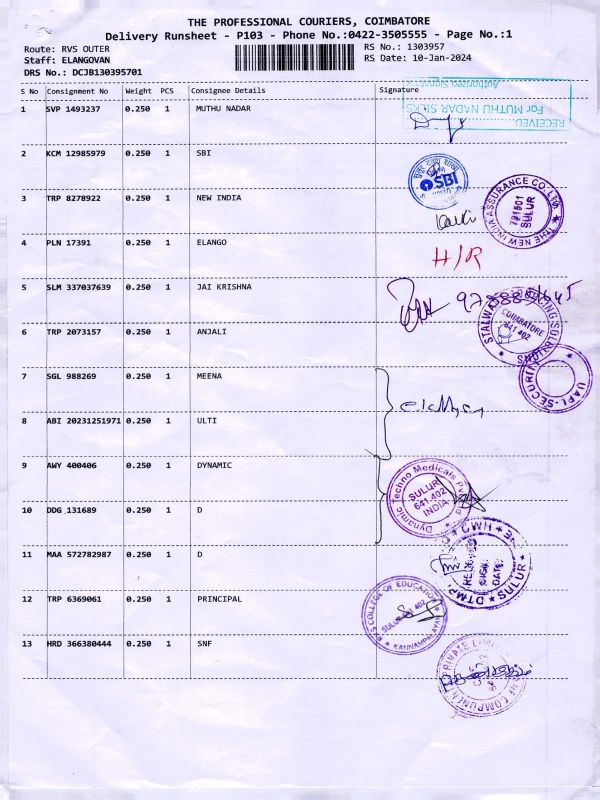 THE PROFESSIONAL COURIERS, COIMBATORE
Delivery Runsheet - P103 - Phone No.:0422-3505555 - Page No.:1
Route: RVS OUTER
RS No.: 1303957
Staff: ELANGOVAN
RS Date: 10-Jan-2024
DRS No.: DCJB130395701
S No Consignment No Weight PCS Consignee Details Signature
Authorized Signatory
For MUTHU NADAR SILKS
RECEIVED
1 SVP 1493237 0.250 1 MUTHU NADAR
2 KCM 12985979 0.250 1 SBI
SBI
3 TRP 8278922 0.250 1 NEW INDIA
THE NEW INDIA ASSURANCE CO. LTD.
721501
SULUR
4 PLN 17391 0.250 1 ELANGO
H/R
5 SLM 337037639 0.250 1 JAI KRISHNA
6 TRP 2073157 0.250 1 ANJALI
COIMBATORE
641 402
7 SGL 988269 0.250 1 MEENA
UAPL-SECURITY
8 ABI 20231251971 0.250 1 ULTI
9 AWY 400406 0.250 1 DYNAMIC
Dynamic Techno Medicals
SULUR
641 402
INDIA
10 DDG 131689 0.250 1 D
11 MAA 572782987 0.250 1 D
CWH
SIGN
DATE
SULUR
12 TRP 6369061 0.250 1 PRINCIPAL
RVS COLLEGE OF EDUCATION
SULUR 641 402
KANNAMPALAYAM
13 HRD 366380444 0.250 1 SNF